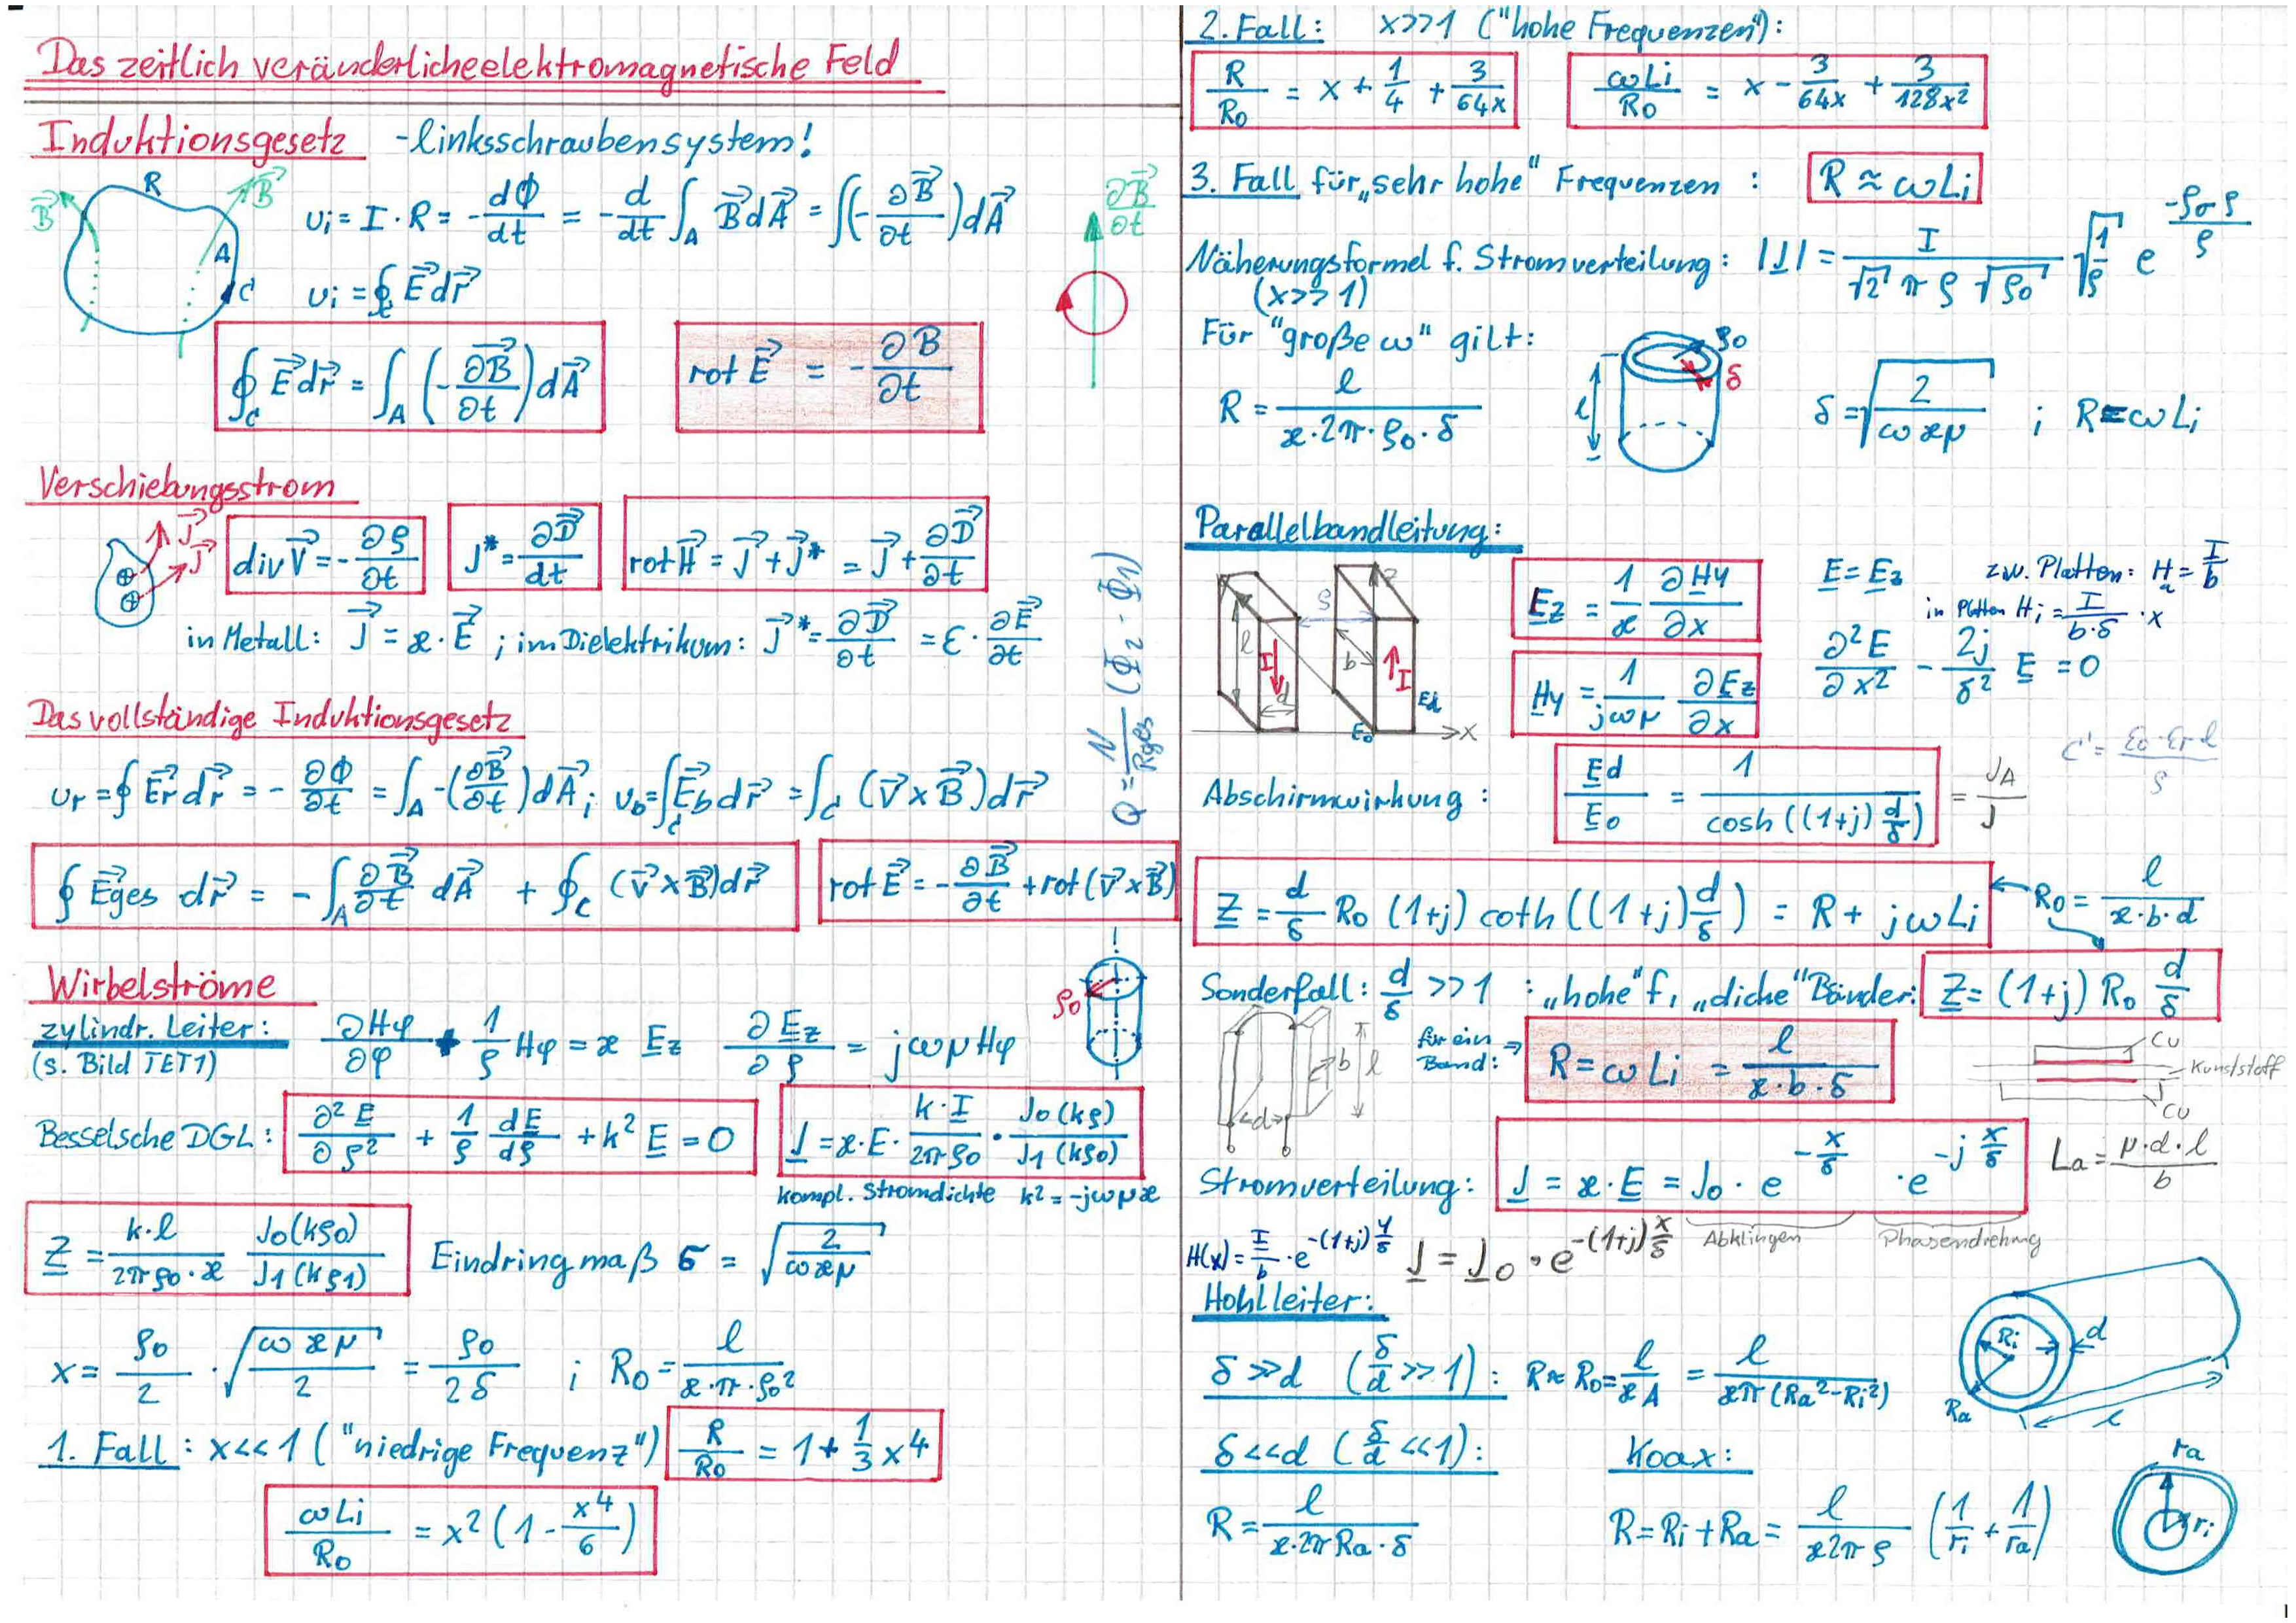 Das zeitlich veränderliche elektromagnetische Feld
Induktionsgesetz - linksschraubensystem!
B⃗ R B⃗ A C
u_i = I · R = - dΦ/dt = - d/dt ∫_A B⃗ dA⃗ = ∫(- ∂B⃗/∂t) dA⃗
∂B⃗/∂t
u_i = ∮_C E⃗ dr⃗
∮_C E⃗ dr⃗ = ∫_A (- ∂B⃗/∂t) dA⃗
rot E⃗ = - ∂B/∂t
Verschiebungsstrom
J⃗ J⃗
div V⃗ = - ∂ρ/∂t
J* = ∂D⃗/dt
rot H⃗ = J⃗ + J⃗* = J⃗ + ∂D⃗/∂t
in Metall: J⃗ = ϰ · E⃗ ; im Dielektrikum: J⃗* = ∂D⃗/∂t = ε · ∂E⃗/∂t
Q = N/Rges (Φ2 - Φ1)
Das vollständige Induktionsgesetz
u_r = ∮ E⃗r dr⃗ = - ∂Φ/∂t = ∫_A -(∂B⃗/∂t) dA⃗ ; u_b = ∫_C E⃗b dr⃗ = ∫_C (v⃗ × B⃗) dr⃗
∮ E⃗ges dr⃗ = - ∫_A ∂B⃗/∂t dA⃗ + ∮_C (v⃗ × B⃗) dr⃗
rot E⃗ = - ∂B⃗/∂t + rot (v⃗ × B⃗)
Wirbelströme
ρ0
zylindr. Leiter: ∂Hφ/∂φ + 1/ρ Hφ = ϰ E_z ∂E_z/∂ρ = jωμHφ
(s. Bild TET1)
Besselsche DGL: ∂²E/∂ρ² + 1/ρ dE/dρ + k² E = 0
J = ϰ · E · k·I/2πρ0 · J0(kρ)/J1(kρ0)
kompl. Stromdichte k² = -jωμϰ
Z = k·l/2πρ0·ϰ J0(kρ0)/J1(kρ1)
Eindringmaß δ = √(2/ωϰμ)
x = ρ0/2 · √(ωϰμ/2) = ρ0/2δ ; R0 = l/ϰ·π·ρ0²
1. Fall: x<<1 ("niedrige Frequenz") R/R0 = 1 + 1/3 x⁴
ωLi/R0 = x² (1 - x⁴/6)
2. Fall: x>>1 ("hohe Frequenzen"):
R/R0 = x + 1/4 + 3/64x
ωLi/R0 = x - 3/64x + 3/128x²
3. Fall für „sehr hohe" Frequenzen : R ≈ ωLi
Näherungsformel f. Stromverteilung: |J| = I/√2 π ρ √ρ0 √(1/ρ) e^(-ρ0 ρ/ρ)
(x>>1)
Für "große ω" gilt:
R = l/ϰ·2π·ρ0·δ
l ρ0 δ
δ = √(2/ωϰμ) ; R = ωLi
Parallelbandleitung:
l I d ρ b I z E0 Ed x
E_z = 1/ϰ ∂Hy/∂x
E = E_z
zw. Platten: H_a = I/b
in Platten H_i = I/b·δ · x
H_y = 1/jωμ ∂E_z/∂x
∂²E/∂x² - 2j/δ² E = 0
C' = ε0·εr·l/ρ
Abschirmwirkung: Ed/E0 = 1/cosh((1+j) d/δ) = JA/J
Z = d/δ R0 (1+j) coth((1+j) d/δ) = R + jωLi
R0 = l/ϰ·b·d
Sonderfall: d/δ >> 1 : „hohe" f, „dicke" Bänder: Z = (1+j) R0 d/δ
b l d
für ein
Band: ⇒ R = ωLi = l/ϰ·b·δ
Cu
Kunststoff
Cu
Stromverteilung: J = ϰ·E = J0 · e^(-x/δ) · e^(-j x/δ)
La = μ·d·l/b
Abklingen Phasendrehung
H(x) = I/b · e^(-(1+j) y/δ) J = J0 · e^(-(1+j) x/δ)
Hohlleiter:
Ri d Ra l
δ >> d (δ/d >> 1): R ≈ R0 = l/ϰA = l/ϰπ(Ra² - Ri²)
δ << d (δ/d << 1):
R = l/ϰ·2πRa·δ
Koax:
R = Ri + Ra = l/ϰ2πρ (1/ri + 1/ra)
ra ri